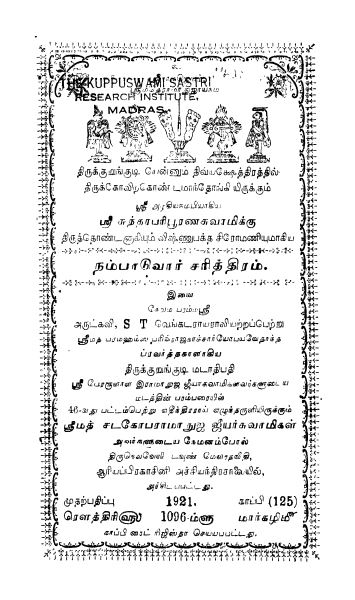 THE KUPPUSWAMI SASTRI
RESEARCH INSTITUTE,
MADRAS
திருக்குறுங்குடி யென்னும் திவ்யக்ஷேத்திரத்தில்
திருக்கோவில்கொண்
ஸ்ரீ
ஸ்ரீ சுந்தரபரிபூரணசுவாமிக்கு
திருத்தொண்டனாகியும் விஷ்ணுபக்த சிரோமணியுமாகிய
நம்பாடுவார் சரித்திரம்.
இவை
அருட்கவி, S T வெங்கடராயரவியற்றப்பெற்று
ஸ்ரீமத் பரமஹம்ஸ
பிரவர்த்தகராகிய
திருக்குறுங்குடி மடாதிபதி
ஸ்ரீ பேரருளாள இராமாநுஜ ஜீயர்சுவாமிகளவர்களுடைய
மடத்தின் பரம்பரையின்
46-வது பட்டம்பெற்று எழுந்தருளியிருக்கும்
ஸ்ரீமத் சடகோபராமாநுஜ ஜீயர்சுவாமிகள்
அவர்களுடைய நேமனம்போல்
திருநெல்வேலி டவுண் மேலரதவீதி,
ஆரியப்பிரகாசினி அச்சியந்திரசாலையில்,
அச்சிடப்பட்டது.
முதற்பதிப்பு 1921. காப்பி (125)
ரௌத்திரிஹு 1096-ம்ளு மார்கழிமீ
காப்பி ரைட் ரிஜிஸ்தர் செய்யப்பட்டது.